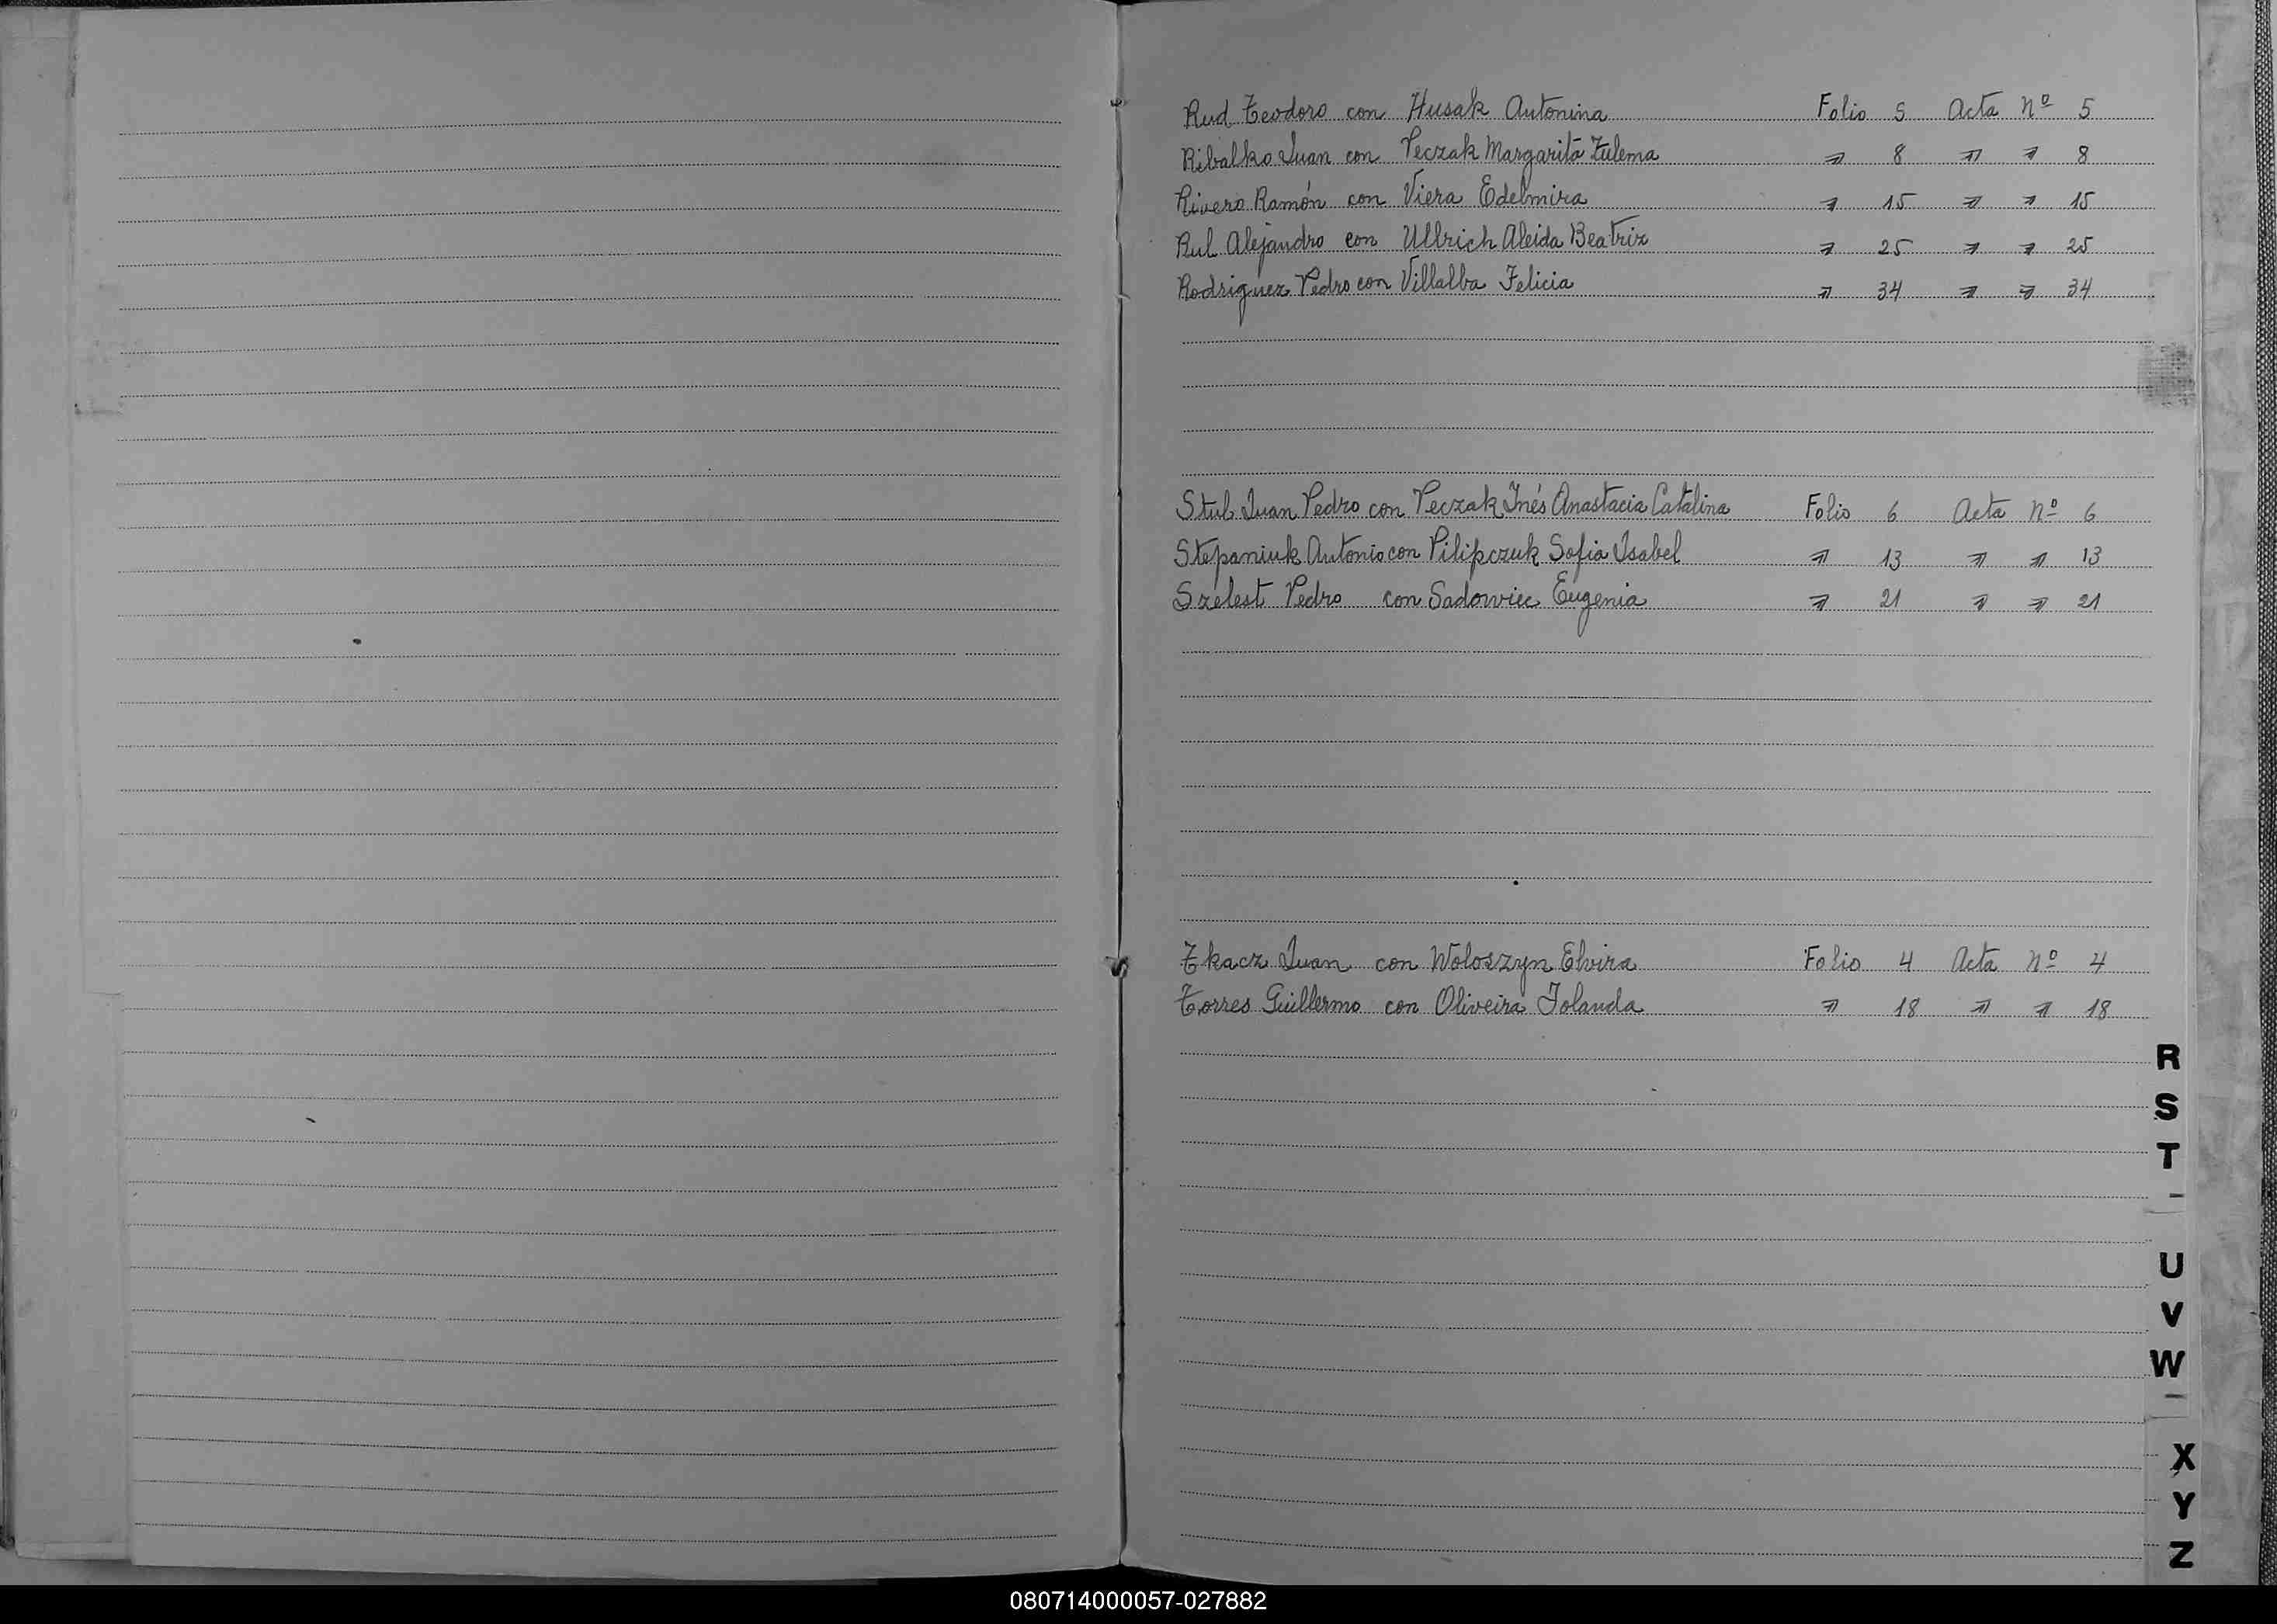 Rud Teodoro con Husak Antonina Folio 5 Acta Nº 5
Ribalko Juan con Peczak Margarita Zulema " 8 " " 8
Rivero Ramón con Viera Edelmira " 15 " " 15
Rul Alejandro con Ullrich Aleida Beatriz " 25 " " 25
Rodriguez Pedro con Villalba Felicia " 34 " " 34
Stub Juan Pedro con Peczak Inés Anastacia Catalina Folio 6 Acta Nº 6
Stepaniuk Antonio con Pilipczuk Sofia Isabel " 13 " " 13
Szelest Pedro con Sadowiec Eugenia " 21 " " 21
Tkacz Juan con Woloszyn Elvira Folio 4 Acta Nº 4
Torres Guillermo con Oliveira Iolanda " 18 " " 18
R
S
T
U
V
W
X
Y
Z
080714000057-027882